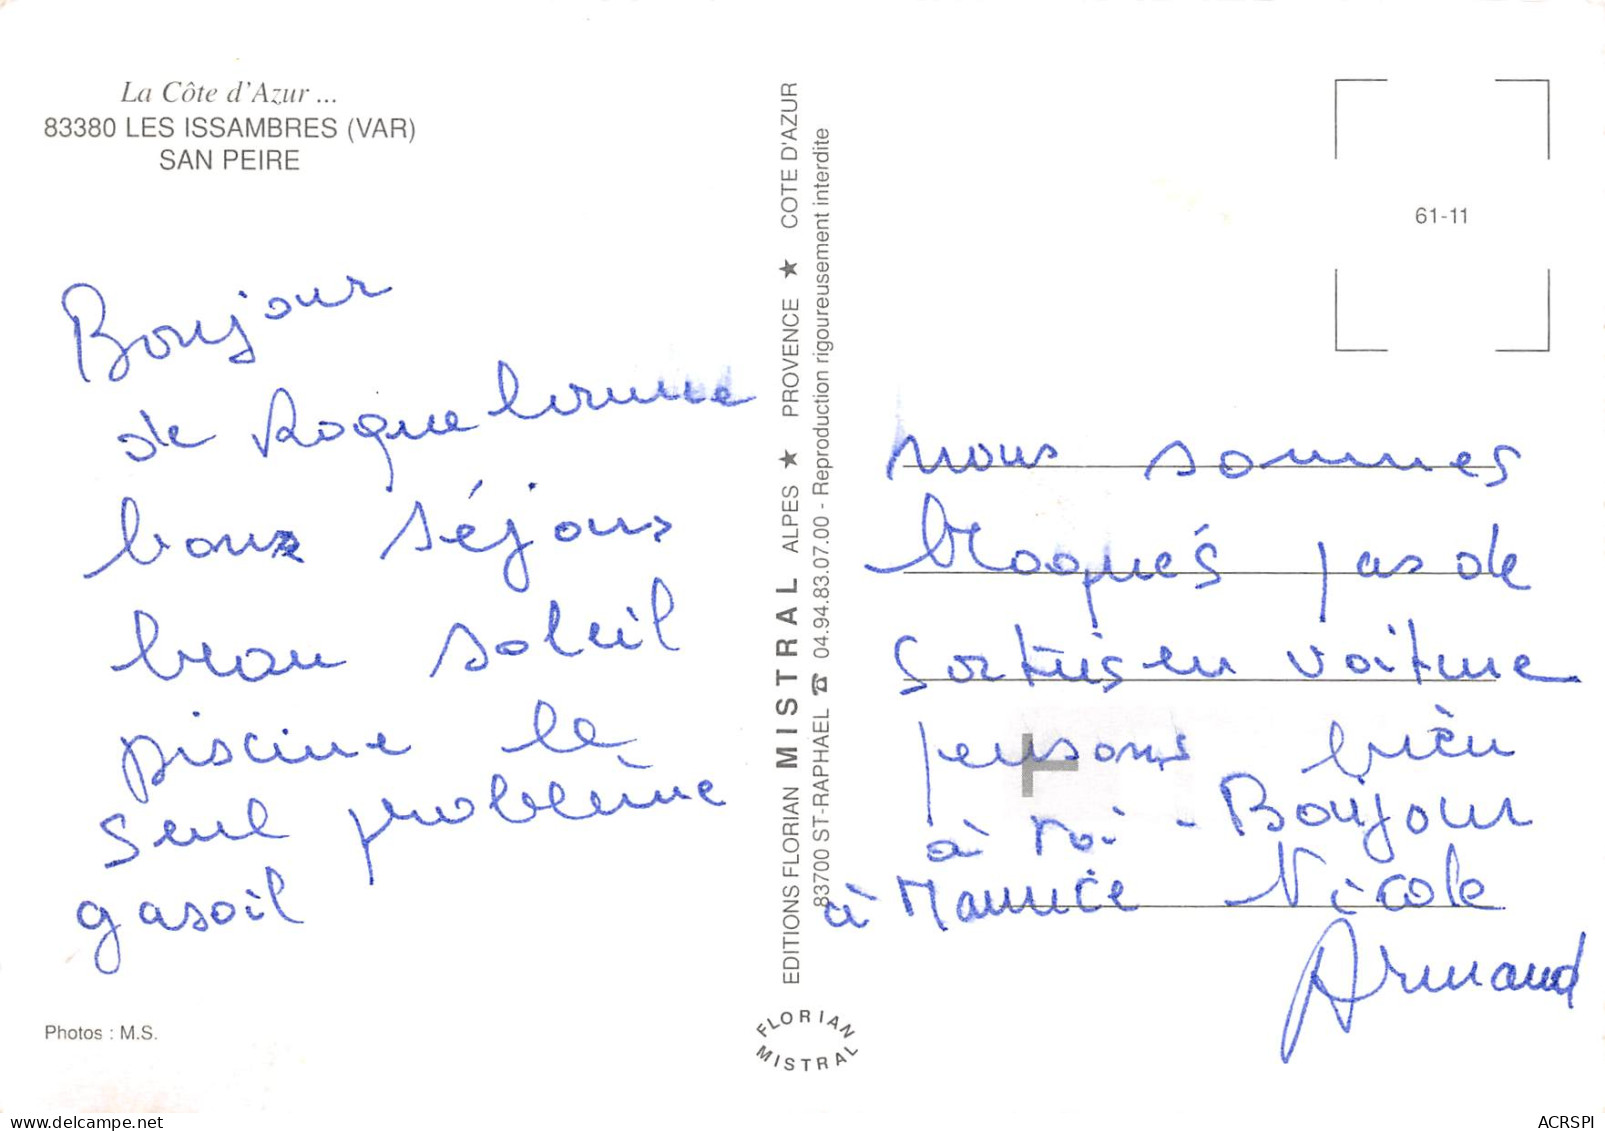 La Côte d'Azur ...
83380 LES ISSAMBRES (VAR)
SAN PEIRE
Bonjour
de Roquebrune
bons séjours
beau soleil
piscine le
seul problème
gasoil
Photos : M.S.
EDITIONS FLORIAN MISTRAL ALPES ★ PROVENCE ★ COTE D'AZUR
83700 ST-RAPHAEL ☎ 04.94.83.07.00 - Reproduction rigoureusement interdite
FLORIAN
MISTRAL
61-11
nous sommes
bloqués pas de
sorties en voiture
pensons bien
à toi - Bonjour
à Maurice Nicole
Armand
delcampe.net
ACRSPI